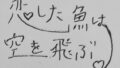 恋した魚は
空を飛ぶ